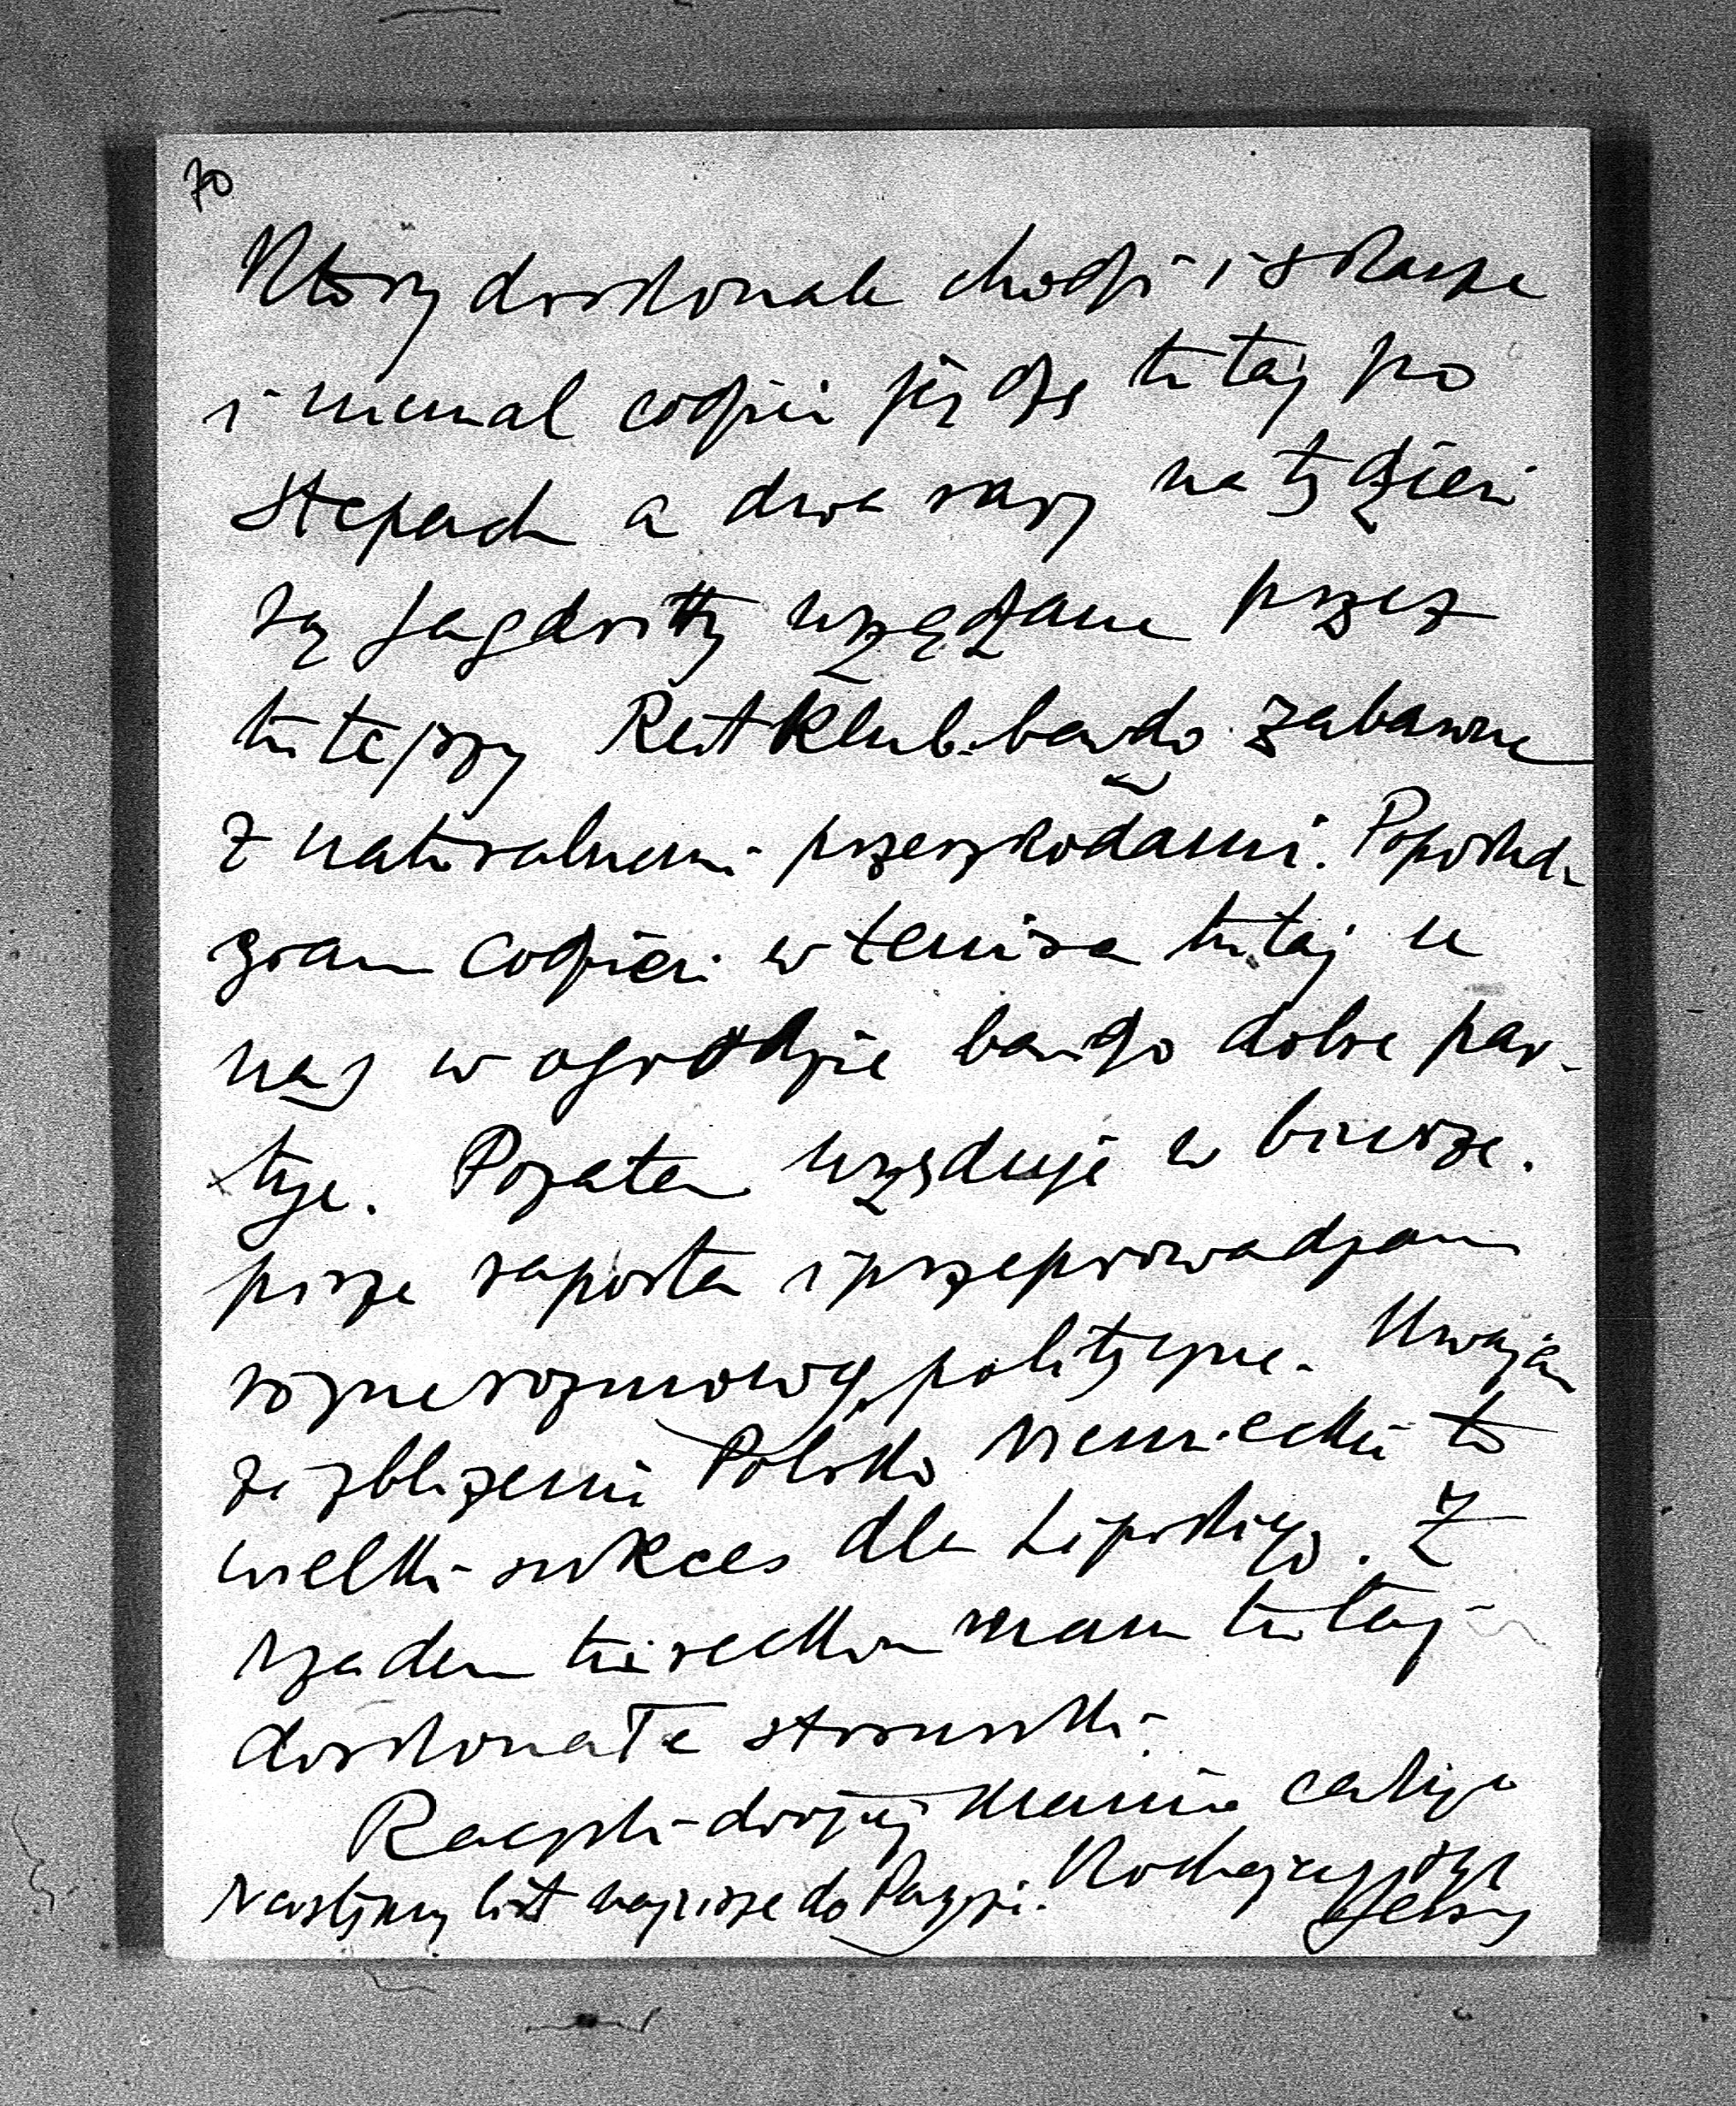 70
Który doskonale chodzi i skacze
i niemal codzień jeżdżę tutaj po
stepach a dwa razy na tydzień
są Jagdritty urządzane przez
tutejszy Reitklub bardzo zabawne
z naturalnemi przeszkodami. Popołud.
gram codzień w tenisa tutaj u
nas w ogrodzie bardzo dobre par-
tye. Pozatem urzęduję w biurze.
piszę raporta i przeprowadzam
rożne rozmowy polityczne. Uważam
że zbliżenie Polsko Niemieckie to
wielki sukces dla Lipskiego. Z
rządem tureckim mam tutaj
doskonałe stosunki.
Rączki drogiej Mamie całuję
Następny list napiszę do Paryża. Kochający syn
Jerzy